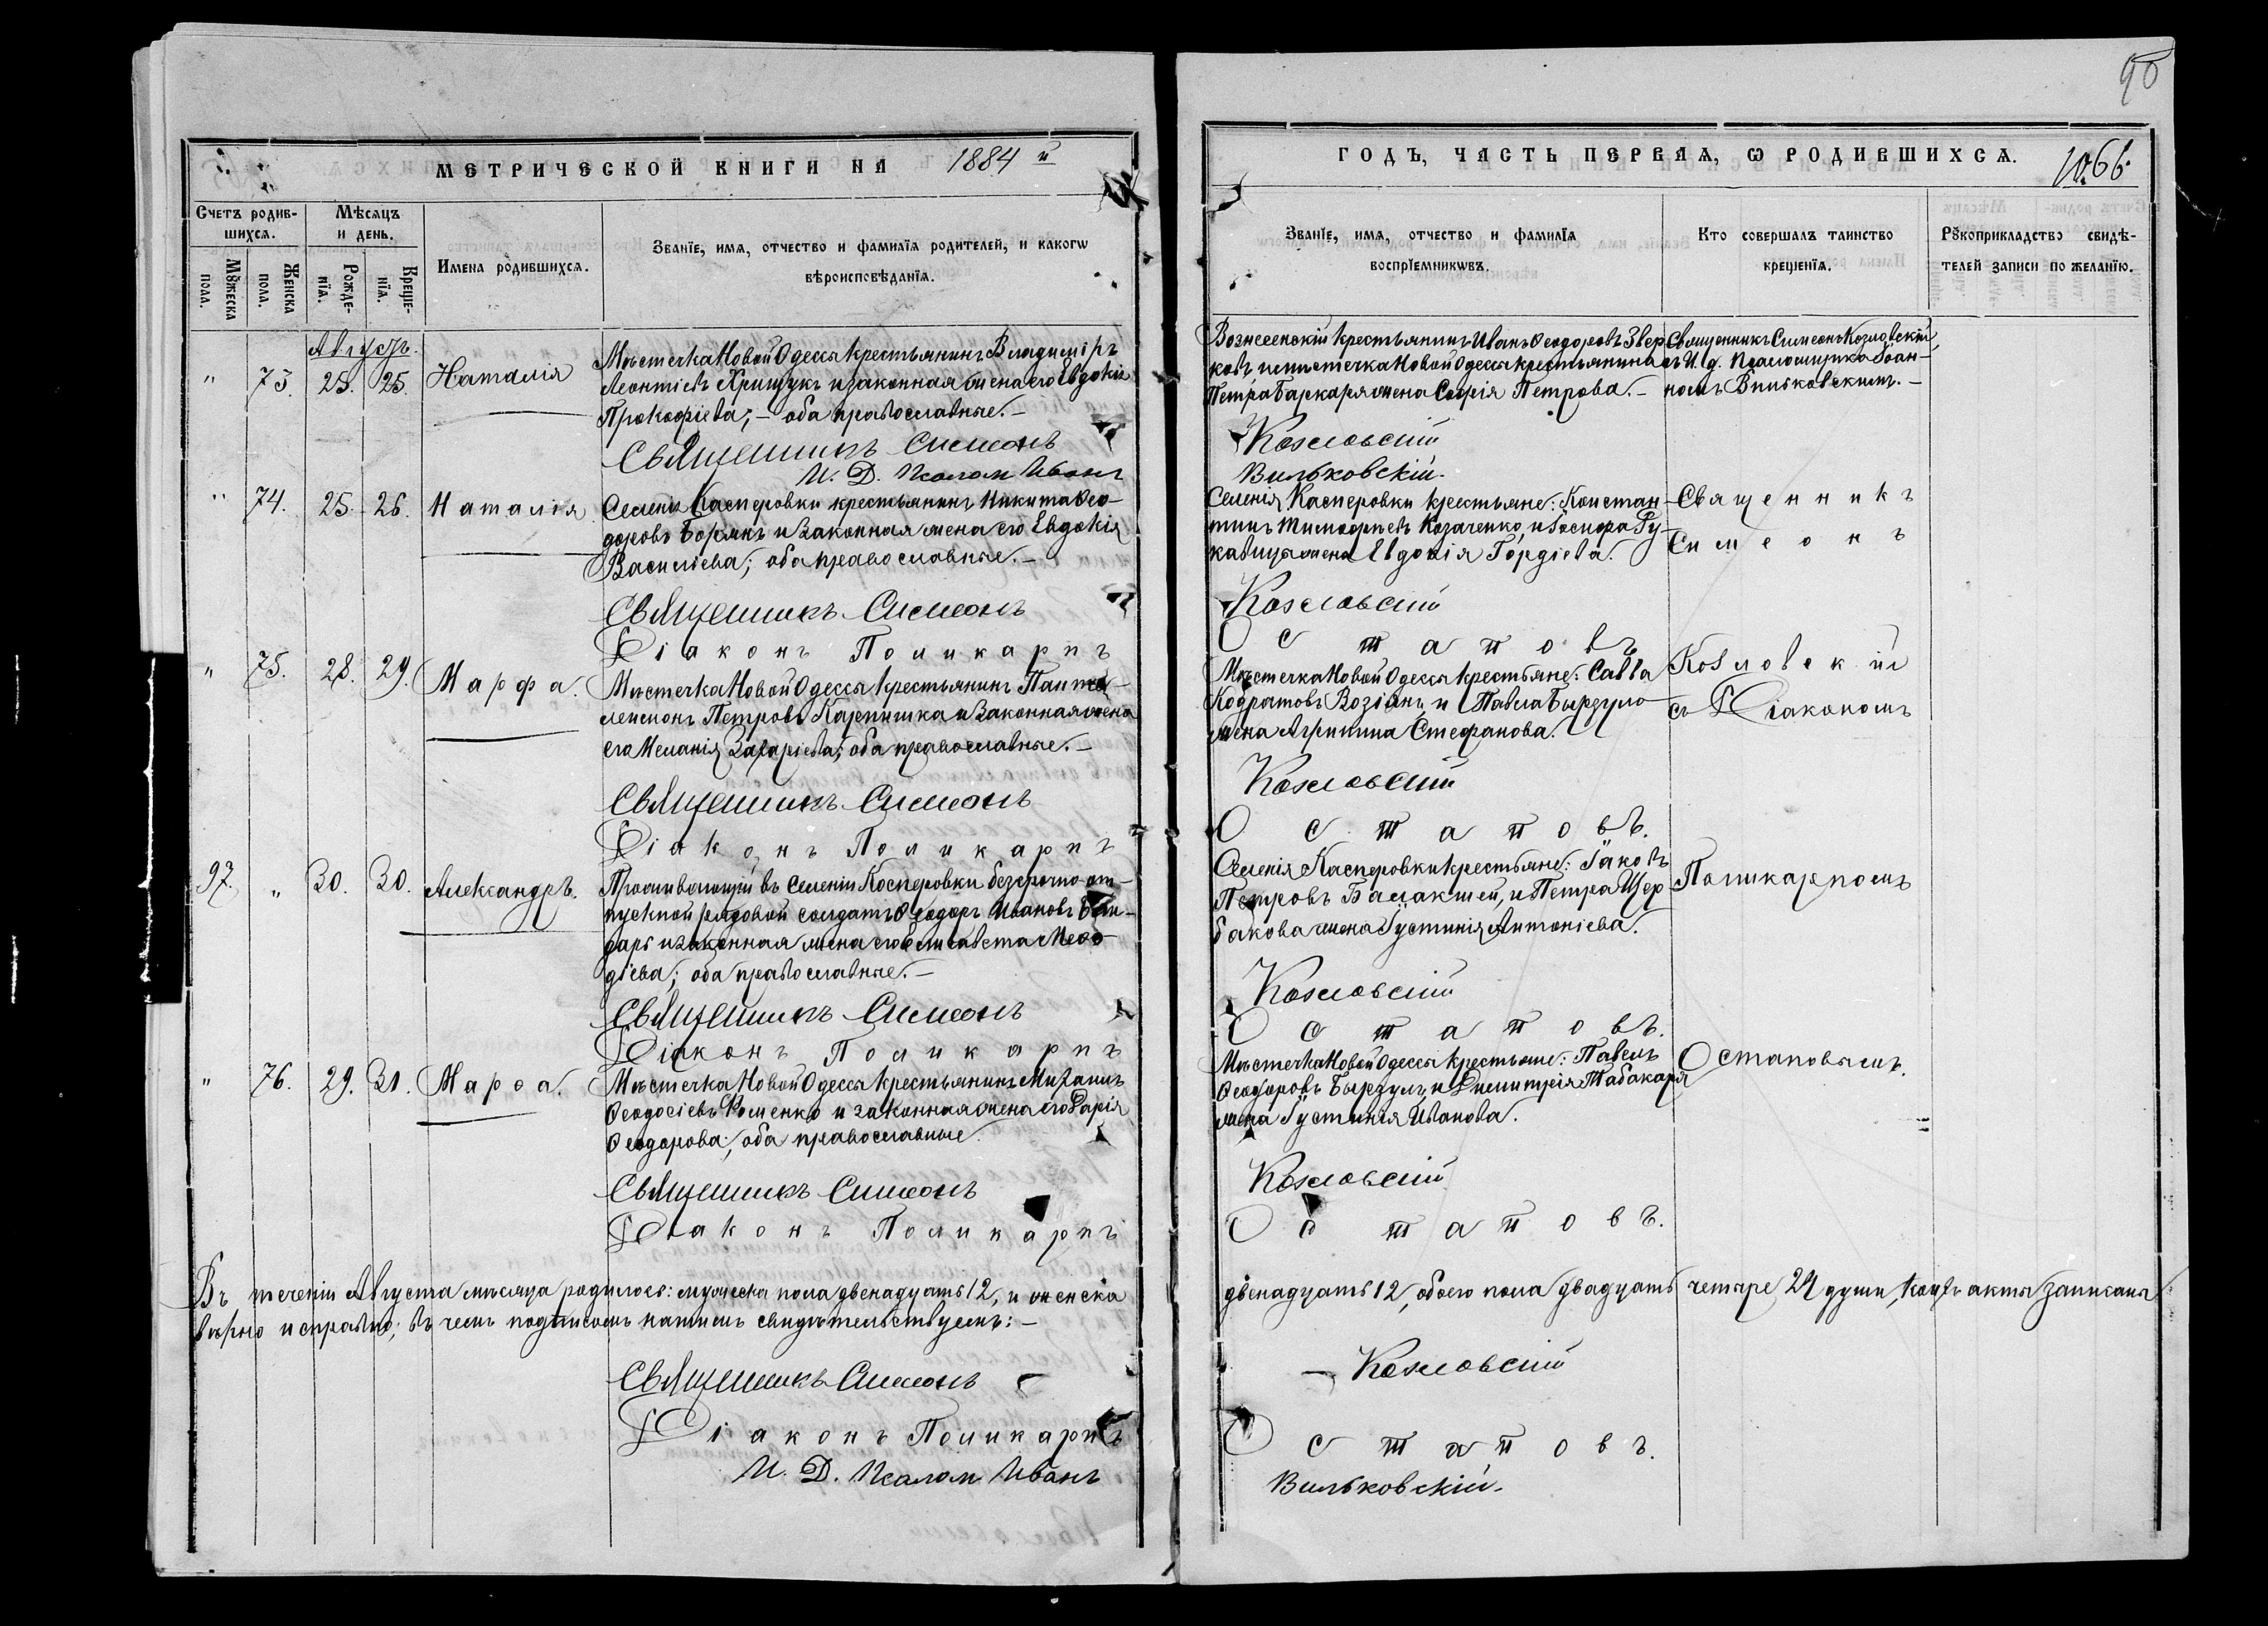 90
МЕТРИЧЕСКОЙ КНИГИ НА 1884 й
ГОДЪ, ЧАСТЬ ПЕРВАЯ, Ѡ РОДИВШИХСЯ.
Счетъ родив-
шихся.
Мѣсяцъ
и день.
Мужеска
пола.
Женска
пола.
Рожде-
нїя.
Креще-
нїя.
Имена родившихся.
Званїе, имя, отчество и фамилїя родителей, и какогѡ
вѣроисповѣданїя.
Званїе, имя, отчество и фамилїя
воспрїемникѡвъ.
Кто совершалъ таинство
крещенїя.
Рꙋкоприкладство свидѣ-
телей записи по желанїю.
Августъ.
" 73. 25. 25. Наталія
Мѣстечка Новой Одессы крестьянинъ Владиміръ
Леонтіевъ Хрищукъ и законная жена его Евдокія
Прокофіева; – оба православные. –
Священникъ Симеонъ
И. Д. Псалом Иванъ
Вознесенскій крестьянинъ Иванъ Ѳеодоровъ Звер
ковъ и мѣстечка Новой Одессы крестьянина
Петра Баркаря жена Софія Петрова. –
Козловскій
Вильковскій.
Священникъ Симеонъ Козловскій
съ И. д. Псаломщика Іоан-
номъ Вильковскимъ. –
" 74. 25. 26. Наталія
Селенія Касперовки крестьянинъ Никита Ѳео-
доровъ и законная жена его Евдокія
Василіева; оба православные. –
Священникъ Симеонъ
Діаконъ Поликарпъ
Селенія Касперовки крестьяне: Констан-
тинъ Тимофѣевъ Козаченко, и Іосифа Ру-
кавицы жена Евдокія Гордіева.
Козловскій
Остаповъ
Священникъ
Симеонъ
" 75. 28. 29. Марфа.
Мѣстечка Новой Одессы крестьянинъ Панте-
леимонъ Петровъ и законная жена
его Меланія Захаріева; оба православные. –
Священникъ Симеонъ
Діаконъ Поликарпъ
Мѣстечка Новой Одессы крестьяне: Савва
Кодратовъ Возіянъ, и Павла Бырзуло
жена Агрипина Стефанова.
Козловскій
Остаповъ.
Козловскій
съ Діакономъ
97. " 30. 30. Александръ.
Проживающій въ селеніи Косперовки безсрочно-от-
пускной рядовой солдатъ Ѳеодоръ Ивановъ Бон-
дарь и законная жена его Елисавета Меѳо-
діева; оба православные. –
Священникъ Симеонъ
Діаконъ Поликарпъ
Селенія Касперовки крестьяне: Іаковъ
Петровъ Балакшей, и Петра Щер-
бакова жена Іустинія Антоніева.
Козловскій
Остаповъ.
Поликарпомъ
" 76. 29. 31. Марѳа.
Мѣстечка Новой Одессы крестьянинъ Михаилъ
Ѳеодосіевъ Фоменко и законная жена его Дарія
Ѳеодорова; оба православные.
Священникъ Симеонъ
Діаконъ Поликарпъ
Мѣстечка Новой Одессы крестьяне: Павелъ
Ѳеодоровъ Бырзулъ, и Димитрія Табакаря
жена Іустинія Иванова.
Козловскій
Остаповъ.
Остаповымъ.
Въ теченіи Августа мѣсяца родилось: мужеска пола двенадцать 12, и женска
двенадцать 12, обоего пола двадцать четыре 24 души, коихъ акты записаны
вѣрно и справно; въ чемъ подписомъ нашимъ свидѣтельствуемъ: –
Священникъ Симеонъ – Козловскій
Діаконъ Поликарпъ Остаповъ.
И. Д. Псалом Иванъ Вильковскій.